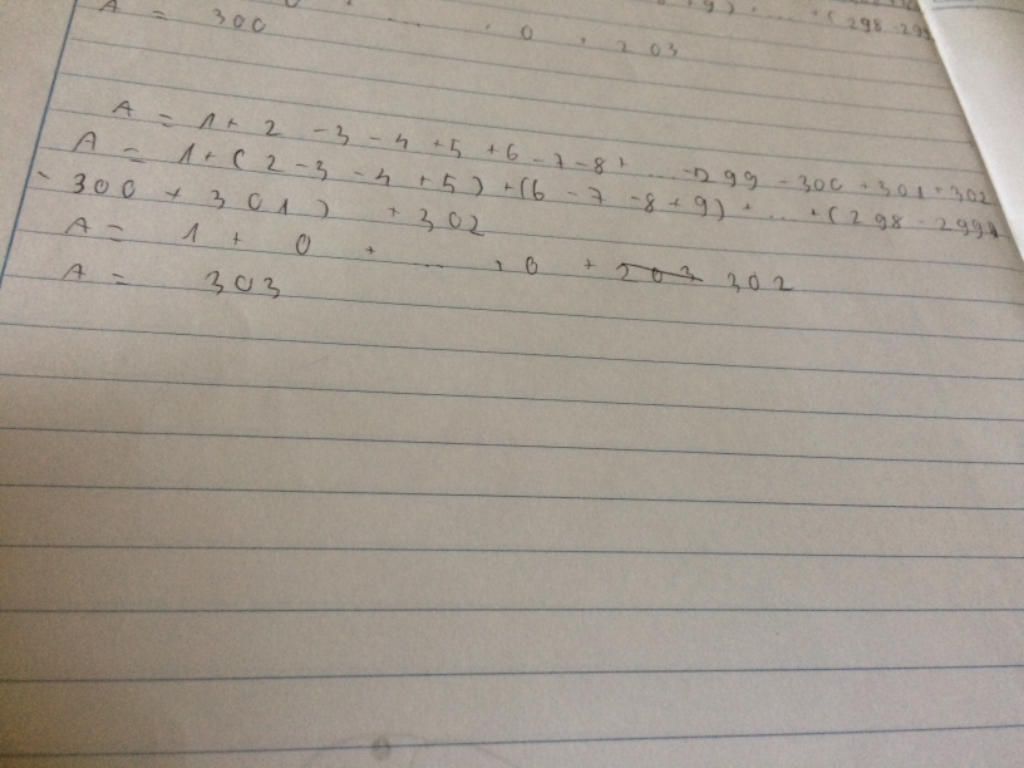 +9) + .... + (298 - 299
0 + 203
A = 300
A = 1 + 2 - 3 - 4 + 5 + 6 - 7 - 8 + ... - 299 - 300 + 301 + 302
A = 1 + ( 2 - 3 - 4 + 5 ) + (6 - 7 - 8 + 9) + ... + (298 - 299
- 300 + 301 ) + 302
A = 1 + 0 + .... + 0 + 203 302
A = 303